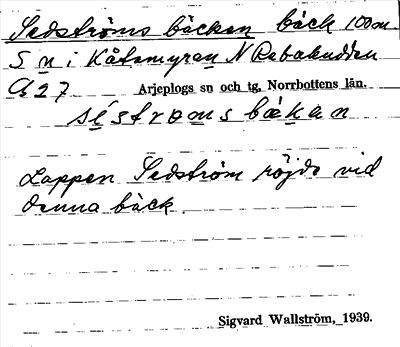 Sedströms bäcken bäck 100 m
S n i Kåtamyran N Rebakudden
G 27 Arjeplogs sn och tg, Norrbottens län.
séstroms bækan
Lappen Sedström röjde vid
denna bäck.
Sigvard Wallström, 1939.